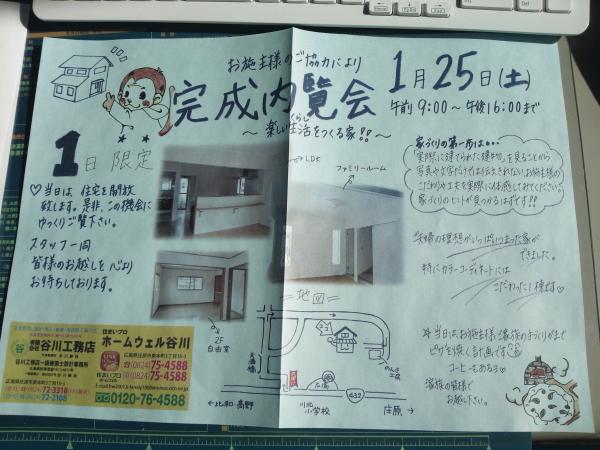 お施主様のご協力により
完成内覧会
1月25日(土)
午前9:00～午後16:00まで
～楽しい生活をつくる家!!～
くらし
1日限定
♡当日は住宅を開放
致します。是非、この機会に
ゆっくりご覧下さい。
スタッフ一同
皆様のお越しを心より
お待ちしております。
LDK
ファミリールーム
2F
自由室
家づくりの第一歩は…
「実際に建てられた建物」を見ることから
写真や文字だけでは伝えきれないお施主様の
こだわりや工夫を実際に体感しておいてください。
家づくりのヒントが見つかるはずです!!
ご夫婦の理想がいっぱいつまった家が
できました。
特にカラーコーディネートには
こだわりました様です♡
＝地図＝
432
広場
川北
小学校
←比和・高野
庄原→
*当日はお施主様ご家族の手づくりがまで
ピザを焼く計画です
コーヒーもあるョ♡
ご家族の皆様で
お越し下さい。
谷川工務店
谷川工務店一級建築士設計事務所
72-3318
72-2186
住まいプロ
ホームウェル谷川
(0824)75-4588
(0824)75-4588
0120-76-4588